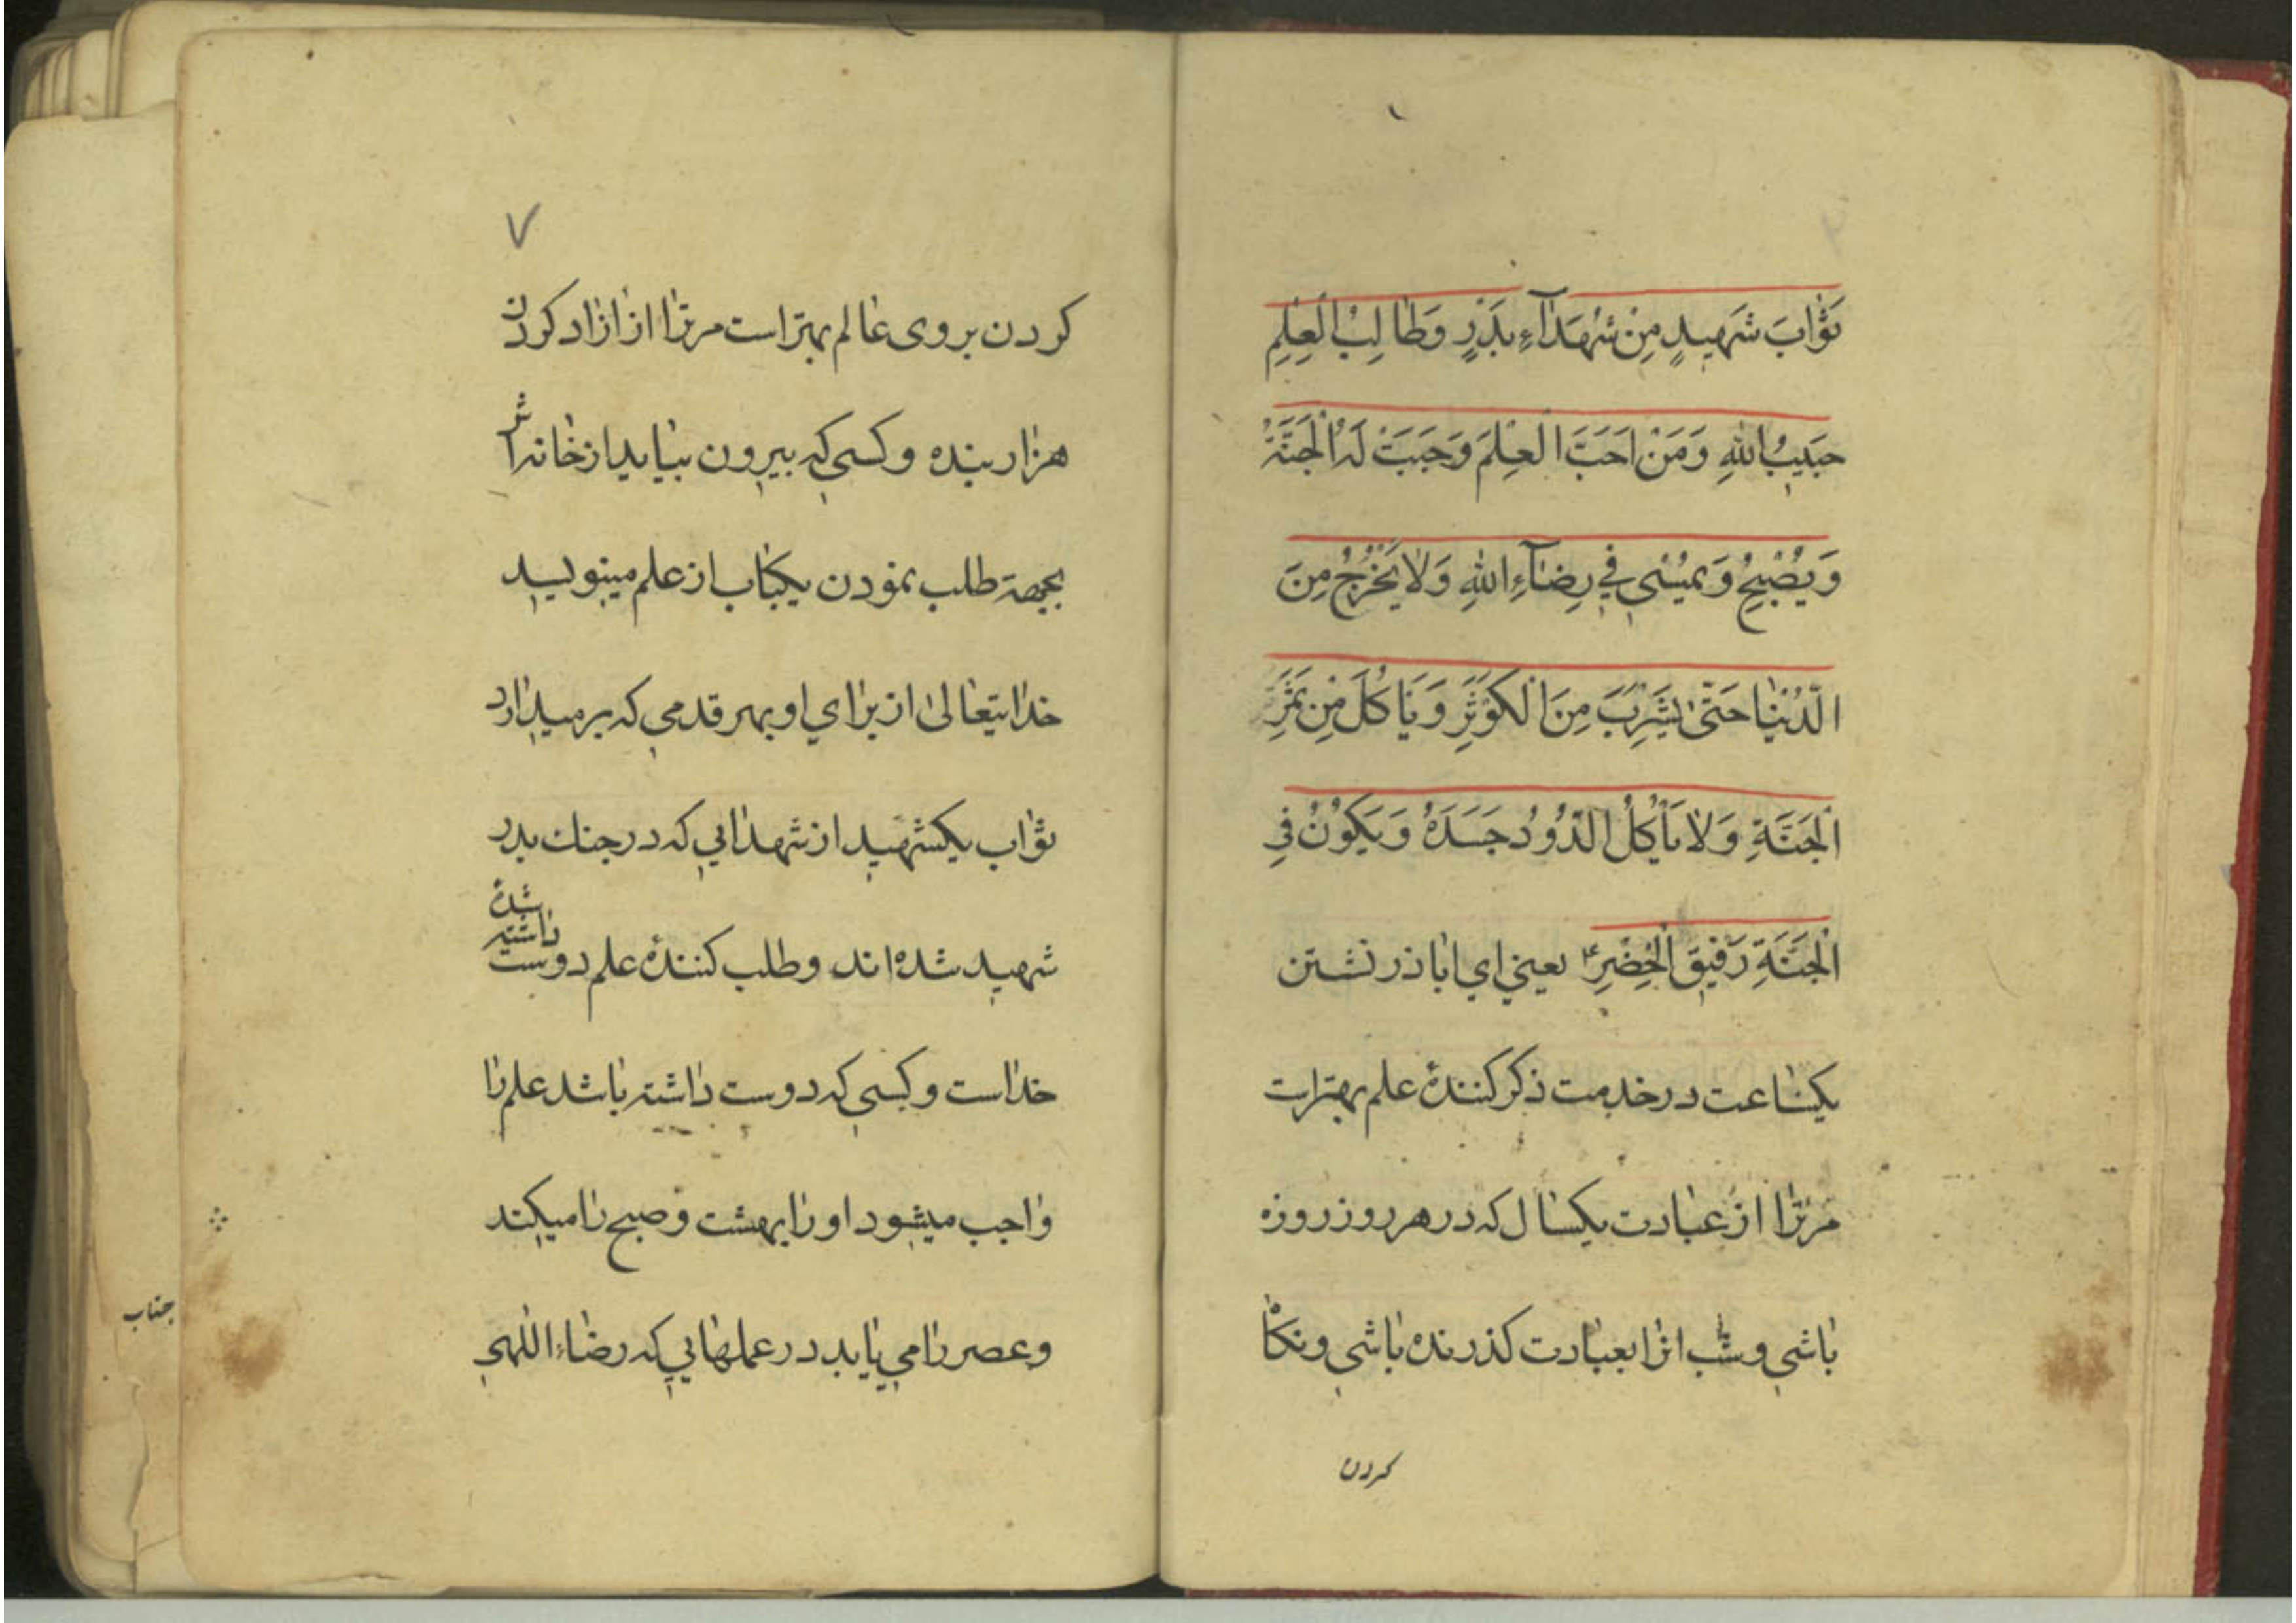 ثَوٰابَ شَهیدٍ مِنْ شُهَدٰآءِ بَدْرٍ وَطٰالِبُ الْعِلْمِ
حَبیبُ اللهِ وَمَنْ اَحَبَّ الْعِلْمَ وَجَبَتْ لَهُ الْجَنَّةُ
وَیُصْبِحُ وَیُمْسٰی فی رِضٰآءِ اللهِ وَلاٰ یَخْرُجُ مِنَ
الدُّنْیٰا حَتّیٰ یَشْرِبَ مِنَ الْکَوْثَرِ وَیَاکُلَ مِنْ ثَمَرَ
الْجَنَّةِ وَلاٰ یَأْکُلُ الدُّودُ جَسَدَهُ وَیَکُونُ فِی
الْجَنَّةِ رَفیقَ الْخِضْرِ؏ یعنی ای اباذر نشستن
یکساعت در خدمت ذکر کنندهٔ علم بهتر است
مر ترا از عبادت یکسال که در هر روز روزه
باشی و شب انرا بعبادت کذرنده باشی و نکاٰ
کردن
۷
کردن بروی عالم بهتر است مر ترا از ازاد کردن
هزار بنده و کسی که بیرون بیاید از خانه اش
بجهة طلب نمودن یکباب از علم مینویسد
خدایتعالیٰ از برای او بهر قدمی که بر میدارد
ثواب یکشهید از شهدایی که در جنك بدر
شهید شده اند و طلب کنندهٔ علم دوست
داشته شدهٔ
خداست و کسی که دوست داشته باشد علم را
واجب میشود او را بهشت و صبح را میکند
وعصر را می یابد در عملهایی که رضاء اللهی
جناب